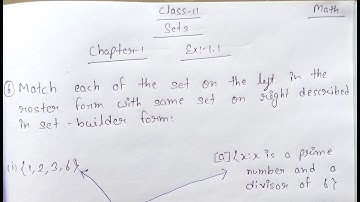 Class-11
Math
Sets
Chapter-1 Ex:-1.1
⑥ Match each of the set on the left in the
roster form with same set on right described
in set-builder form:
(i) {1, 2, 3, 6}
[a] {x:x is a prime
number and a
divisor of 6}